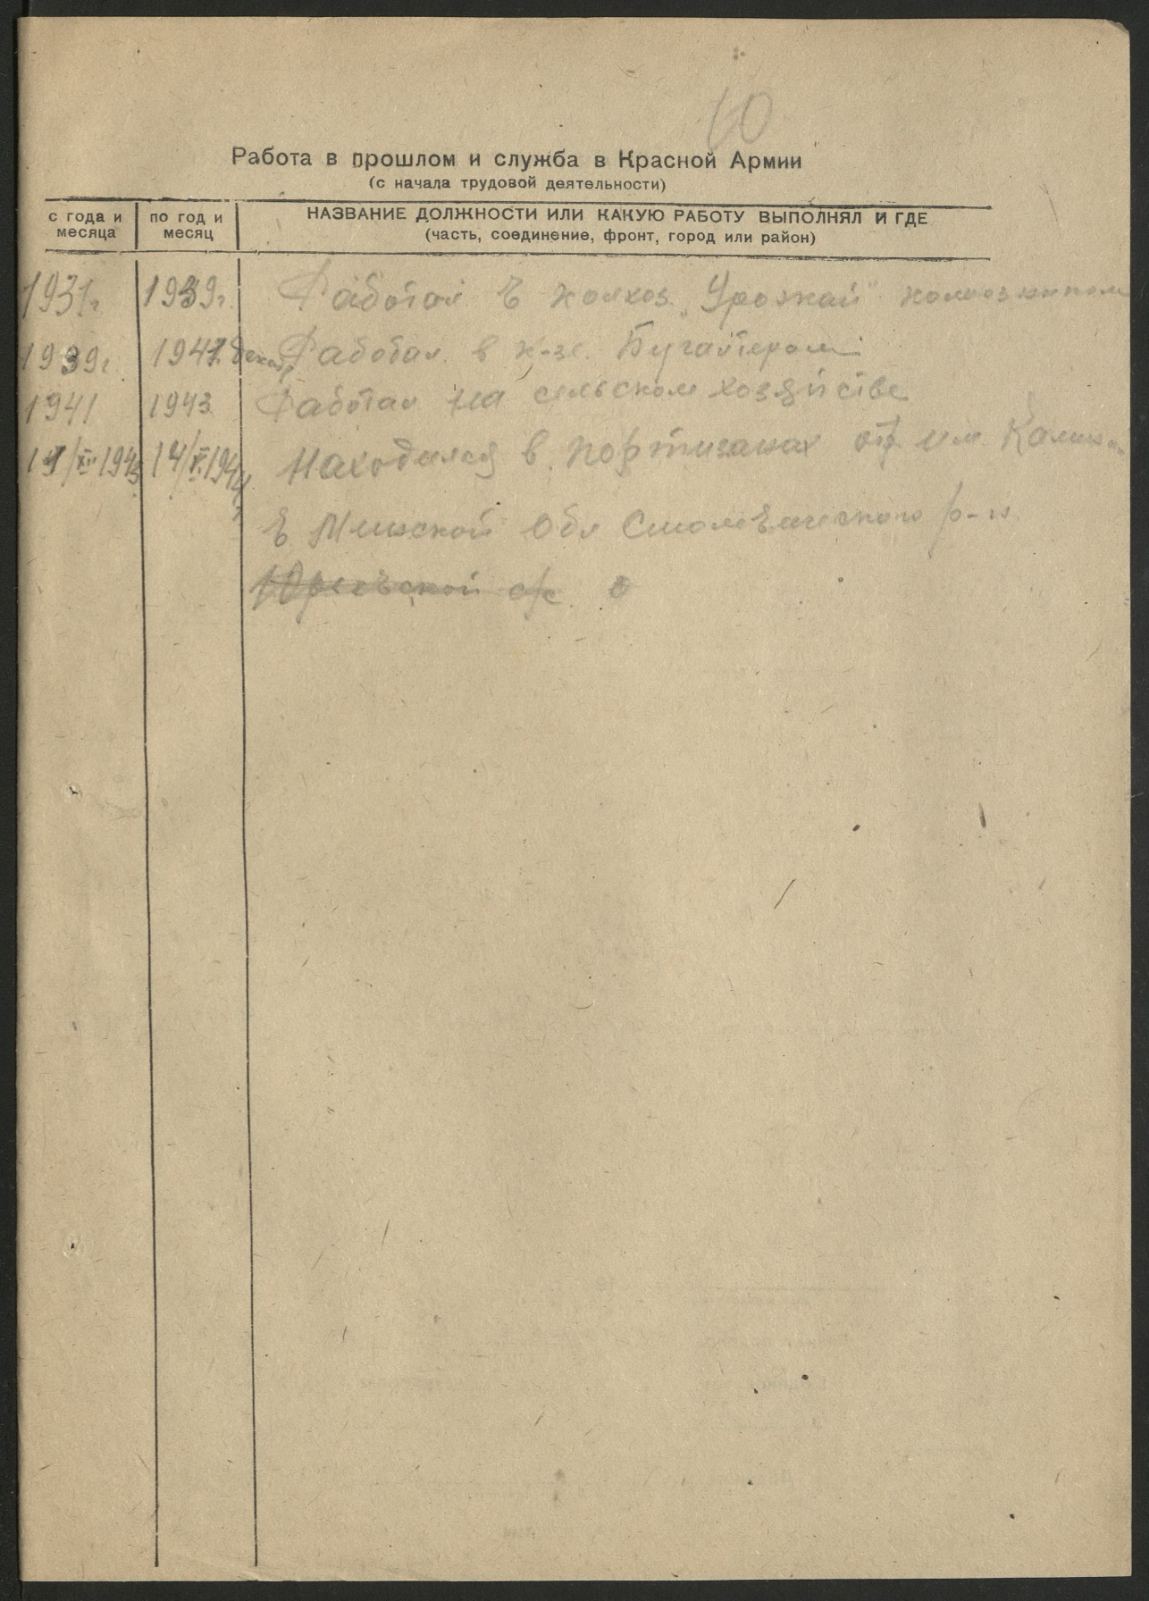 10
Работа в прошлом и служба в Красной Армии
(с начала трудовой деятельности)
с года и месяца | по год и месяц | НАЗВАНИЕ ДОЛЖНОСТИ ИЛИ КАКУЮ РАБОТУ ВЫПОЛНЯЛ И ГДЕ
(часть, соединение, фронт, город или район)
1931г. 1939г. Работал в колхоз „Урожай" колхозником
1939г. 1941 Работал в к-зе Бугалтером
1941 1943 Работал на сельском хозяйстве
1943 14/ 1944 Находился в портизанах отр. им. Калин
в Минской Обл Смолевического р-н
с/с